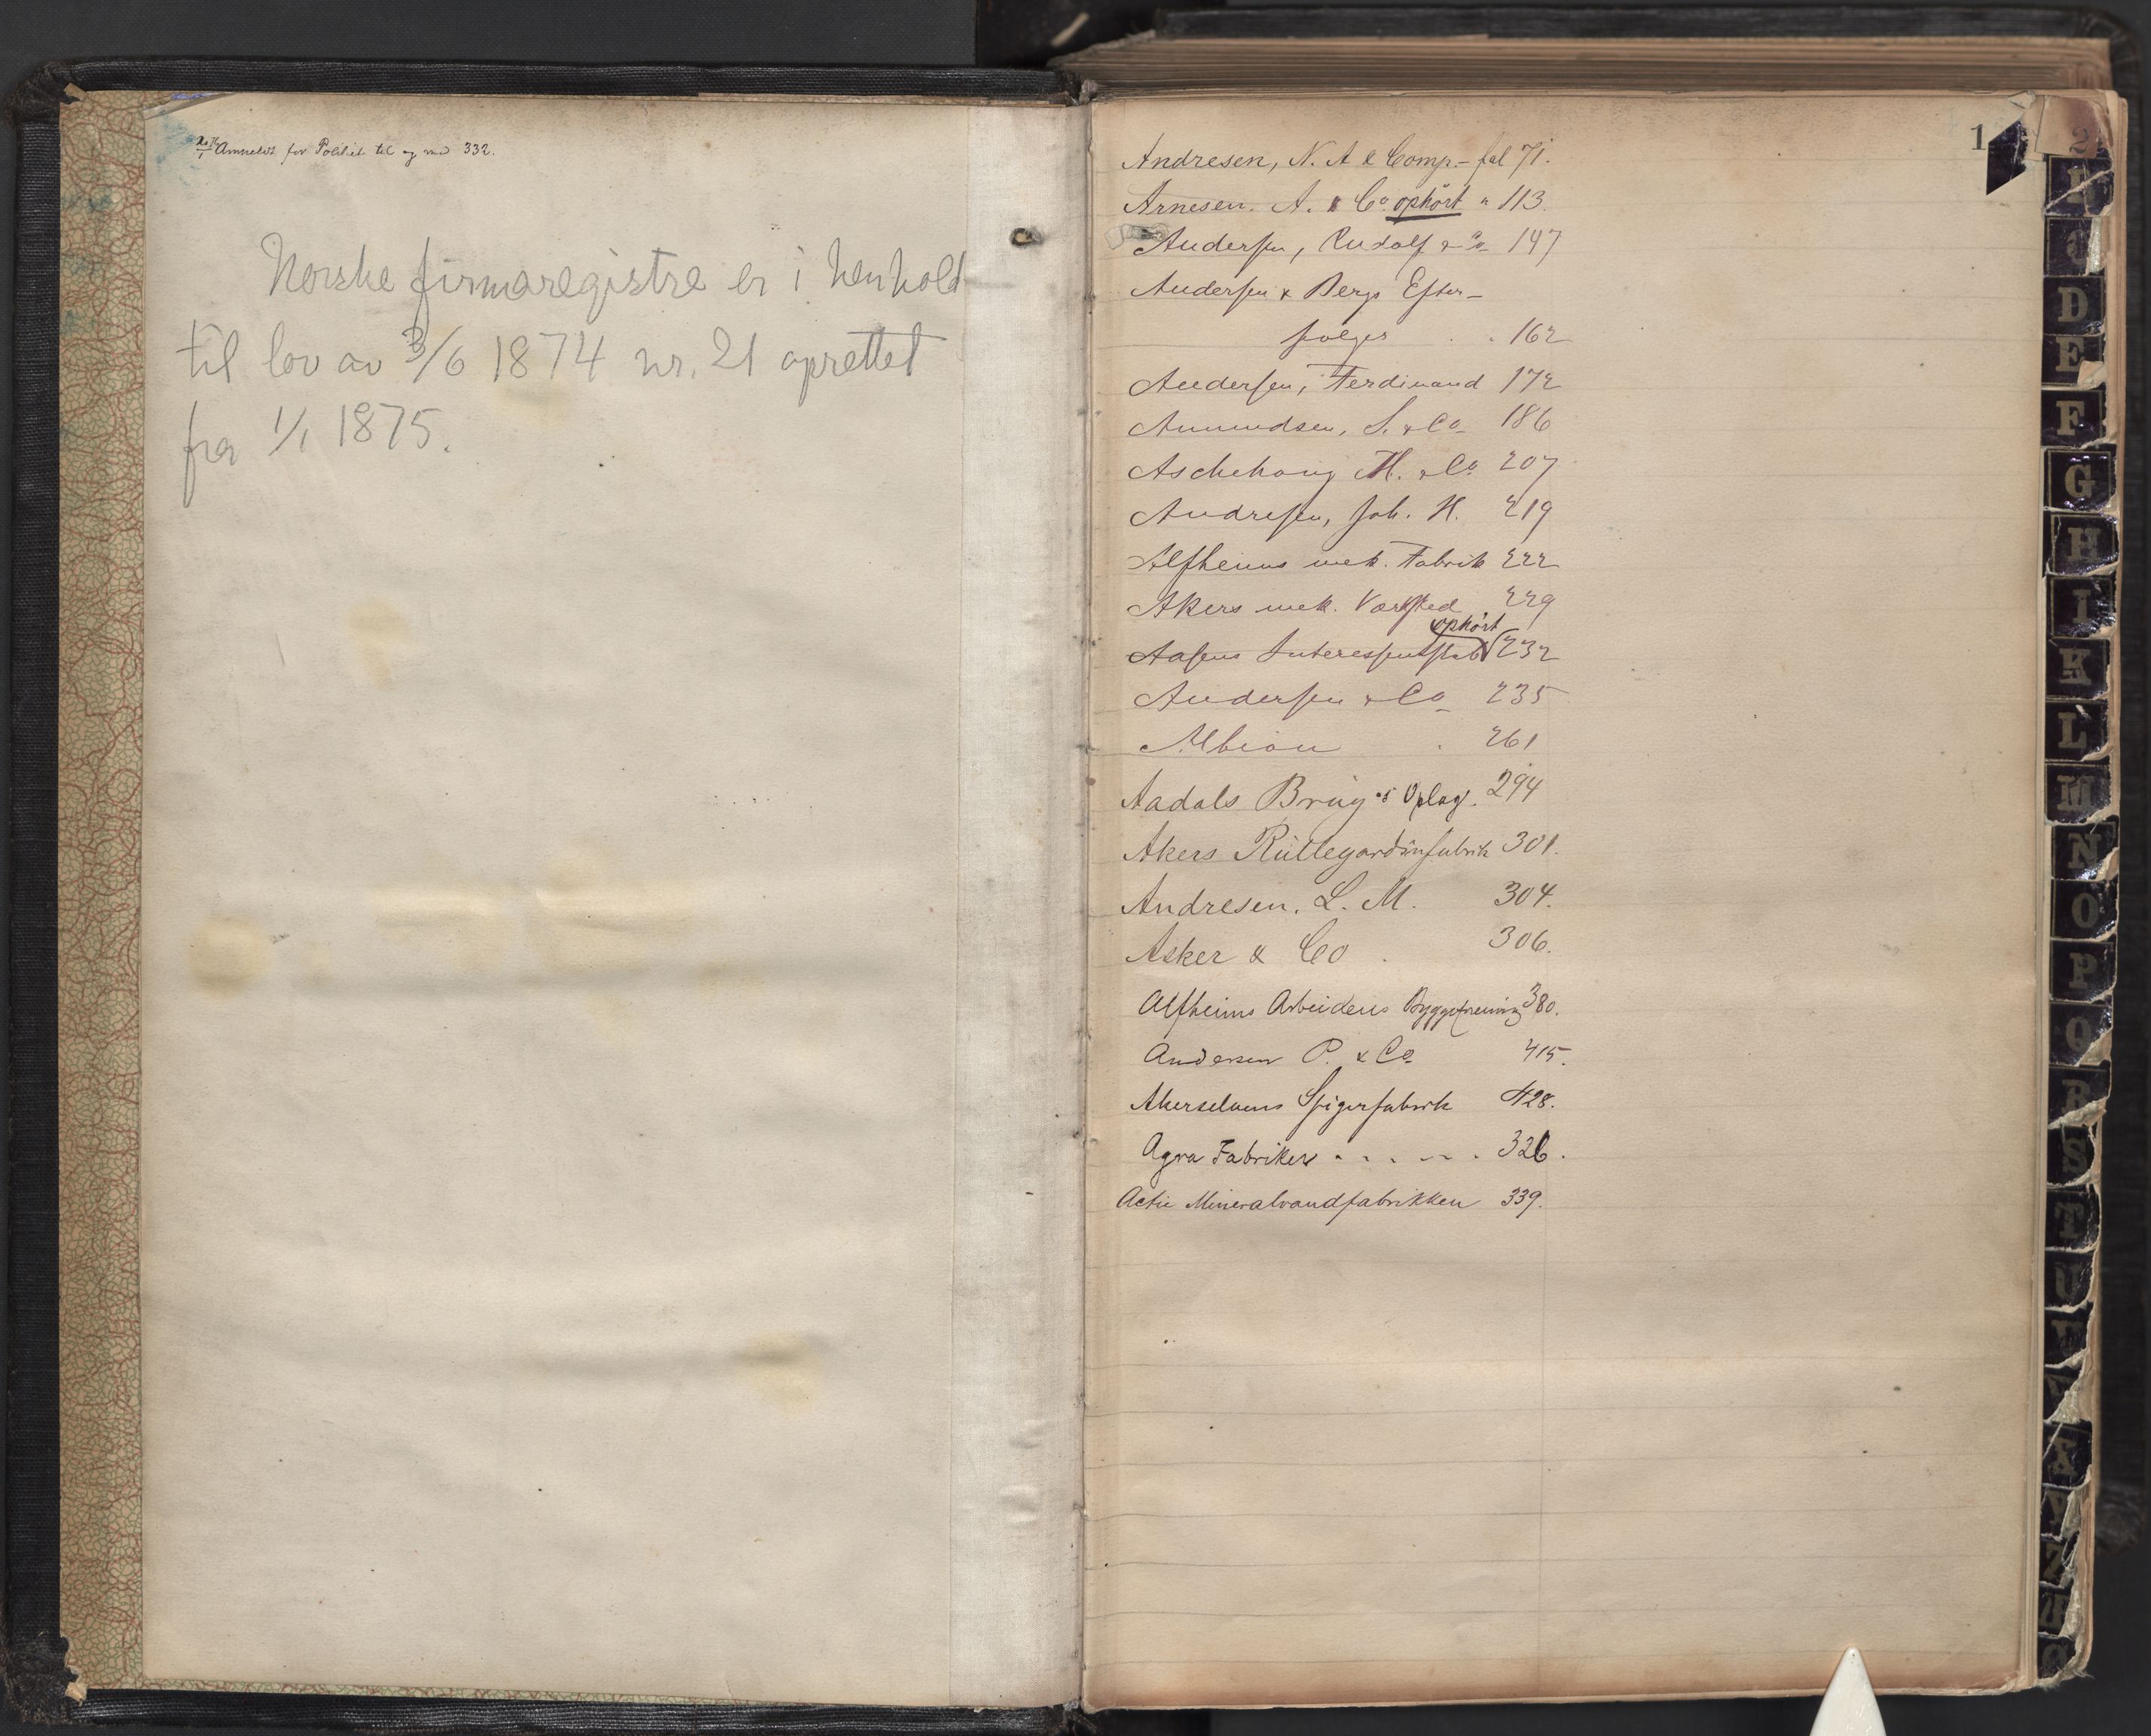 Anmeldt for Politiet til og med 332.
Norske firmaregistre er i henhold
til lov av 3/6 1874 nr. 21 oprettet
fra 1/1 1875.
1
Andresen, N. A & Comp. - fol 71.
Arnesen. A. & Co ophört " 113.
Andersen, Rudolf & Co 147
Andersen & Bergs Efter-
følger . . 162
Andersen, Ferdinand 172
Amundsen, S. & Co 186
Aschehoug H. & Co 207
Andresen, Joh. H. 219
Alfheims mek. Fabrik 222
Akers mek. Værksted . 229
ophört
Aasens Interessentskab 232
Andersen & Co 235
Albion . 261
Aadals Brug's Oplag. 294
Akers Rullegardinfabrik 301.
Andresen. L. M. 304.
Asker & Co . 306.
Alfheims Arbeideres Byggeforening 380.
Andersen P. & Co 415.
Akerselvens Spigerfabrik 428.
Agra Fabriker . . . . . . 326.
Actie Mineralvandfabrikken 339.
2
D
E
F
G
H
I
K
L
M
N
O
P
Q
R
S
T
U
V
X
Y
Z